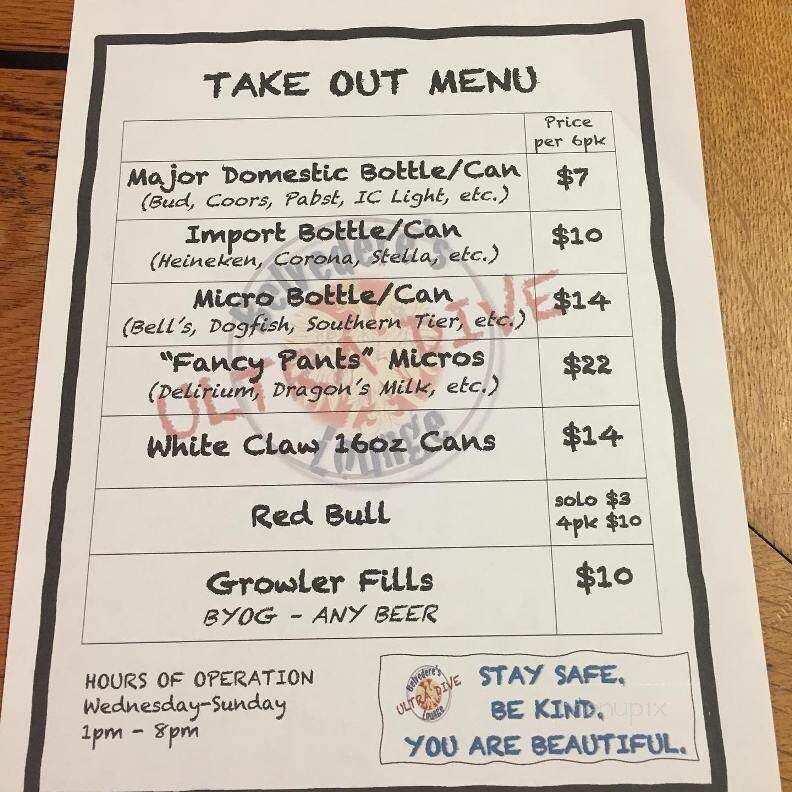 TAKE OUT MENU
Price
per 6pk
Major Domestic Bottle/Can
$7
(Bud, Coors, Pabst, IC Light, etc.)
Import Bottle/Can
$10
(Heineken, Corona, Stella, etc.)
Micro Bottle/Can
$14
(Bell's, Dogfish, Southern Tier, etc.)
"Fancy Pants" Micros
$22
(Delirium, Dragon's Milk, etc.)
White Claw 16oz Cans
$14
Red Bull
solo $3
4pk $10
Growler Fills
$10
BYOG - ANY BEER
Belvedere's
ULTRA DIVE
Lounge
HOURS OF OPERATION
Wednesday-Sunday
1pm - 8pm
Belvedere's
ULTRA DIVE
Lounge
STAY SAFE.
BE KIND.
YOU ARE BEAUTIFUL.
menupix